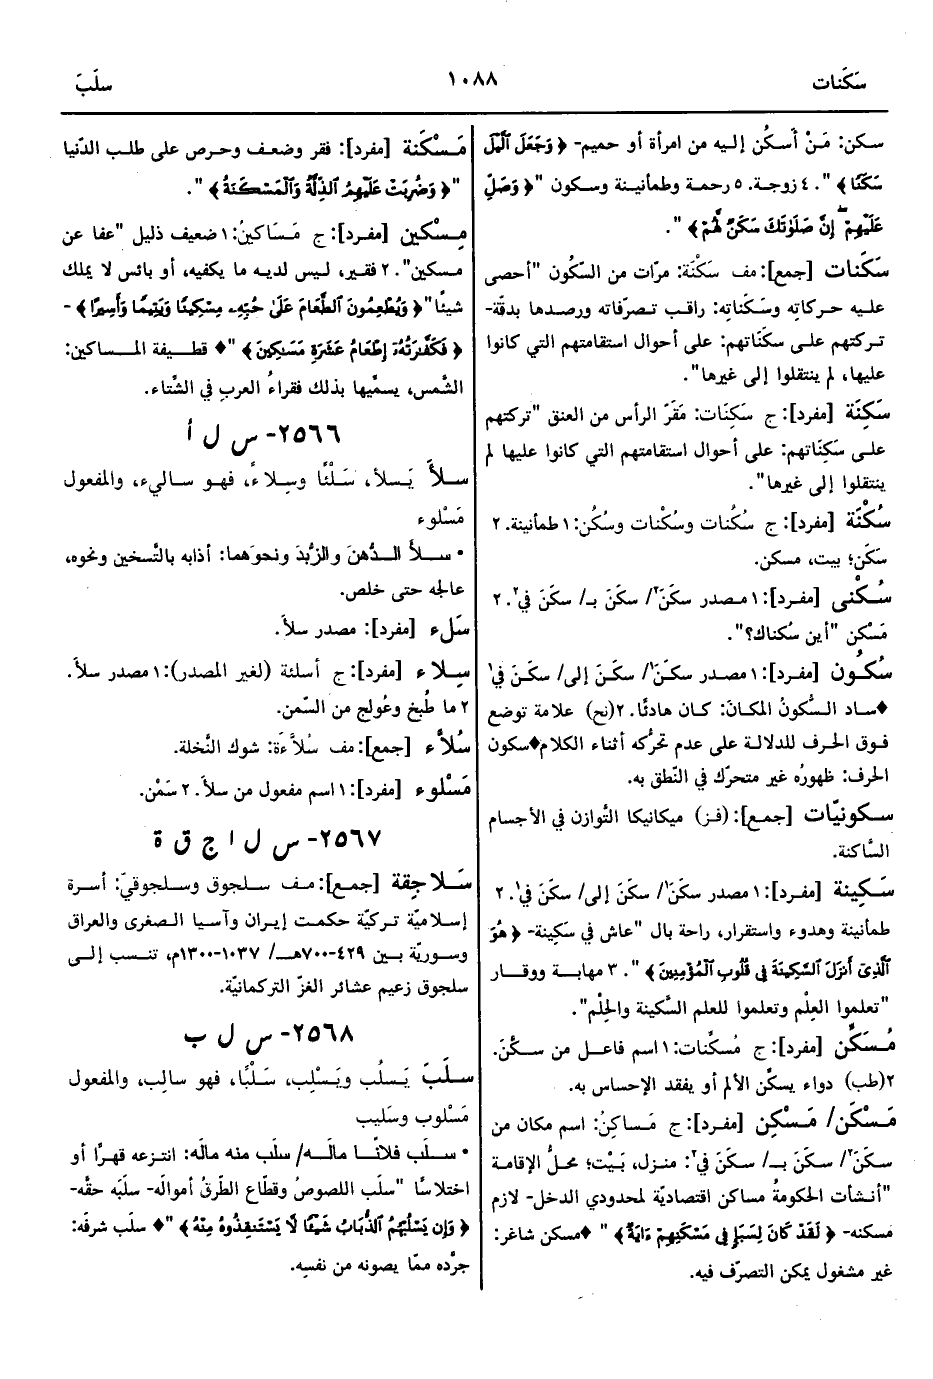 سَكَنات
١٠٨٨
سلَبَ
سكن: مَنْ أَسكُن إليه من امرأة أو حميم- ﴿ وَجَعَلَ ٱلَّيْلَ
سَكَنًا ﴾ ". ٤ زوجة. ٥ رحمة وطمأنينة وسكون "﴿ وَصَلِّ
عَلَيْهِمْ إِنَّ صَلَوٰتَكَ سَكَنٌ لَّهُمْ ﴾ ".
سَكَنات [جمع]: مف سَكْنَة: مرّات من السّكون "أحصى
عليه حركاتِه وسَكَناتِه: راقب تصرّفاته ورصدها بدقَّة-
تركتهم على سكَناتهم: على أحوال استقامتهم التي كانوا
عليها، لم ينتقلوا إلى غيرها".
سَكِنَة [مفرد]: ج سَكِنَات: مَقَرّ الرأس من العنق "تركتهم
على سَكِنَاتهم: على أحوال استقامتهم التي كانوا عليها لم
ينتقلوا إلى غيرها".
سُكْنَة [مفرد]: ج سُكُنات وسُكْنات وسُكَن: ١ طمأنينة. ٢
سَكَن؛ بيت، مسكن.
سُكْنى [مفرد]: ١ مصدر سكَنَ٢/ سكَنَ بـ/ سكَنَ في٢. ٢
مَسْكِن "أين سُكناك؟".
سُكُون [مفرد]: ١ مصدر سكَنَ١/ سكَنَ إلى/ سكَنَ في١
♦ساد السُّكونُ المكانَ: كان هادئًا. ٢(نح) علامة توضع
فوق الحرف للدلالة على عدم تحرُّكه أثناء الكلام♦سكون
الحرف: ظهورُه غير متحرّك في النّطق به.
سكونيّات [جمع]: (فز) ميكانيكا التّوازن في الأجسام
السَّاكنة.
سَكينة [مفرد]: ١ مصدر سكَنَ١/ سكَنَ إلى/ سكَنَ في١. ٢
طمأنينة وهدوء واستقرار، راحة بال "عاش في سَكِينة- ﴿ هُوَ
ٱلَّذِىٓ أَنزَلَ ٱلسَّكِينَةَ فِى قُلُوبِ ٱلْمُؤْمِنِينَ ﴾ ". ٣ مهابة ووقار
"تعلموا العِلْم وتعلموا للعلم السَّكينة والحِلْم".
مُسَكِّن [مفرد]: ج مُسكِّنات: ١ اسم فاعل من سكَّنَ.
٢(طب) دواء يسكِّن الألم أو يفقد الإحساس به.
مَسْكَن/ مَسْكِن [مفرد]: ج مَساكِنُ: اسم مكان من
سكَنَ٢/ سكَنَ بـ/ سكَنَ في٢: منزل، بَيْت؛ محلُّ الإقامة
"أنشأت الحكومةُ مساكن اقتصاديَّة لمحدودي الدخل- لازم
مسكنه- ﴿ لَقَدْ كَانَ لِسَبَإٍ فِى مَسْكَنِهِمْ ءَايَةٌ ﴾ " ♦مسكن شاغر:
غير مشغول يمكن التصرّف فيه.
مَسْكَنَة [مفرد]: فقر وضعف وحرص على طلب الدّنيا
"﴿ وَضُرِبَتْ عَلَيْهِمُ ٱلذِّلَّةُ وَٱلْمَسْكَنَةُ ﴾ ".
مِسْكين [مفرد]: ج مَساكينُ: ١ ضعيف ذليل "عفا عن
مسكين". ٢ فقير، ليس لديه ما يكفيه، أو بائس لا يملك
شيئًا "﴿ وَيُطْعِمُونَ ٱلطَّعَامَ عَلَىٰ حُبِّهِۦ مِسْكِينًا وَيَتِيمًا وَأَسِيرًا ﴾-
﴿ فَكَفَّٰرَتُهُۥٓ إِطْعَامُ عَشَرَةِ مَسَٰكِينَ ﴾ "♦ قطيفة المساكين:
الشّمس، يسمِّيها بذلك فقراءُ العرب في الشّتاء.
٢٥٦٦- س ل أ
سلأَ يَسلأ، سَلْئًا وسِلاءً، فهو سالِيء، والمفعول
مَسْلوء
• سلأ الدُّهنَ والزُّبدَ ونحوَهما: أذابه بالتَّسخين ونحوه،
عالجه حتى خلص.
سَلْء [مفرد]: مصدر سلأَ.
سِلاء [مفرد]: ج أسلئة (لغير المصدر): ١ مصدر سلأَ.
٢ ما طُبخ وعُولج من السَّمن.
سُلاَّء [جمع]: مف سُلاَّءَة: شوك النَّخلة.
مَسْلوء [مفرد]: ١ اسم مفعول من سلأَ. ٢ سَمْن.
٢٥٦٧- س ل ا ج ق ة
سَلاجِقة [جمع]: مف سلجوق وسلجوقيّ: أسرة
إسلاميّة تركيّة حكمت إيران وآسيا الصغرى والعراق
وسوريّة بين ٤٢٩-٧٠٠هـ/ ١٠٣٧-١٣٠٠م، تنسب إلى
سلجوق زعيم عشائر الغزّ التركمانيّة.
٢٥٦٨- س ل ب
سلَبَ يَسلُب ويَسْلِب، سَلْبًا، فهو سالِب، والمفعول
مَسْلوب وسَليب
• سلَب فلانًا مالَه/ سلَب منه مالَه: انتزعه قهرًا أو
اختلاسًا "سلَب اللصوصُ وقطاع الطّرقُ أموالَه- سلَبَه حقَّه-
﴿ وَإِن يَسْلُبْهُمُ ٱلذُّبَابُ شَيْـًٔا لَّا يَسْتَنقِذُوهُ مِنْهُ ﴾ "♦ سلَب شرفَه:
جرَّده ممّا يصونه من نفسِه.